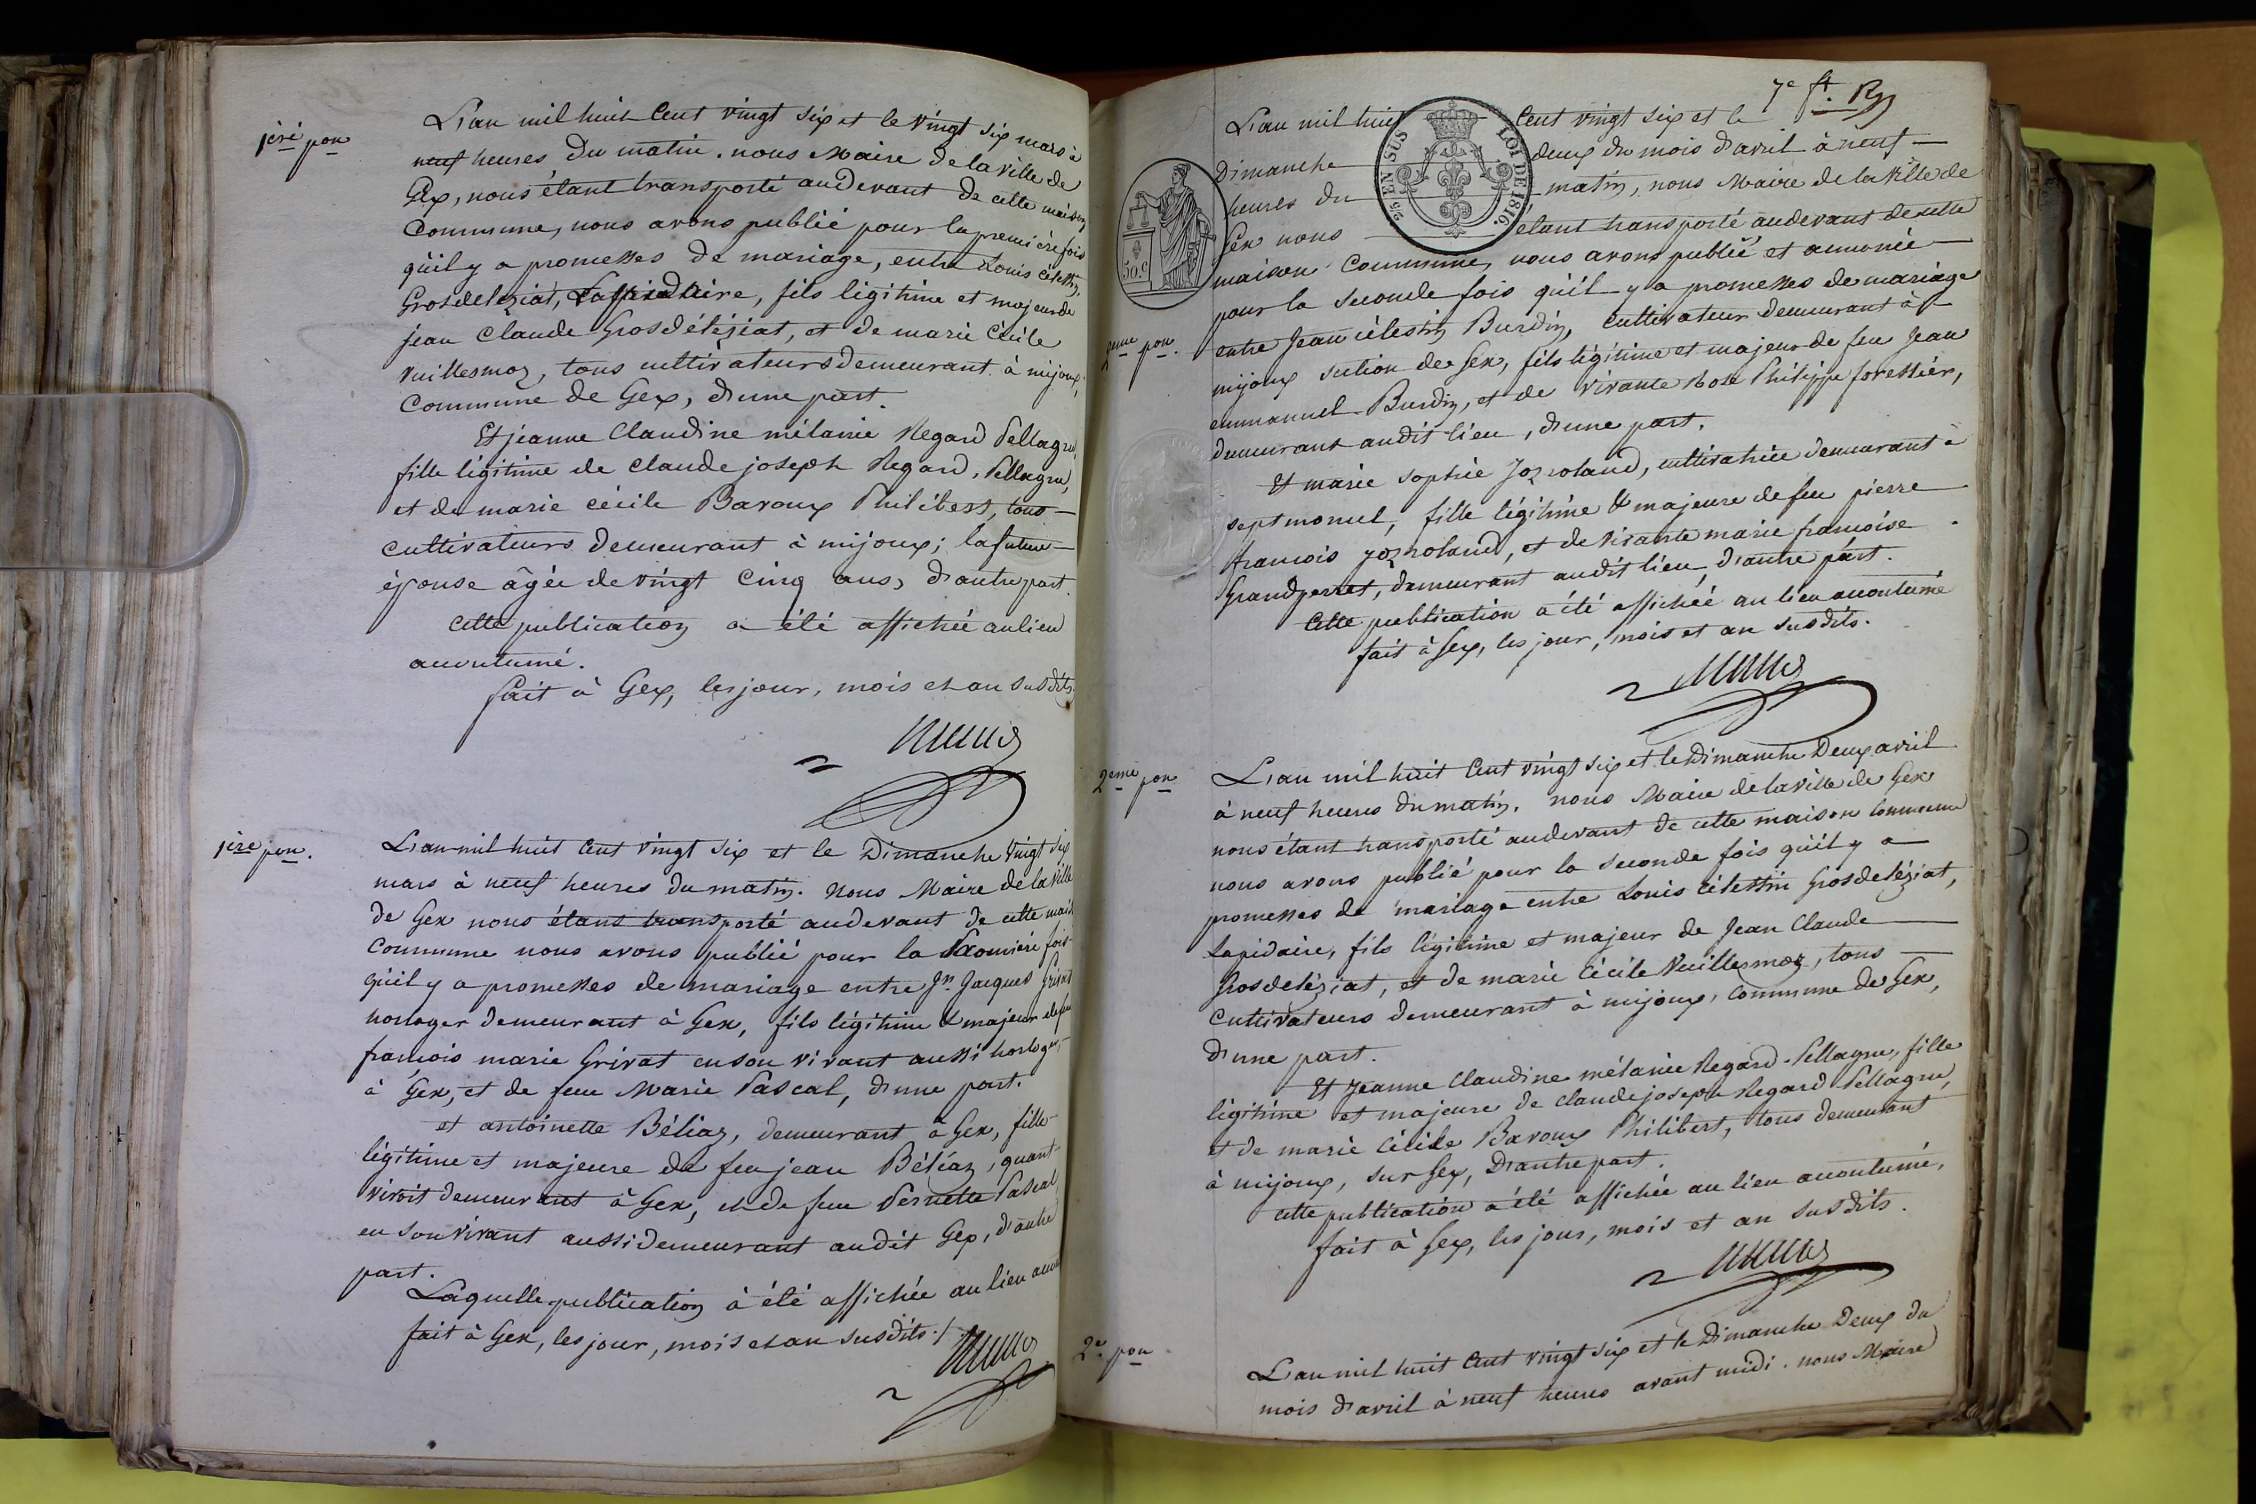 1ère pon
L'an mil huit Cent vingt six et le vingt six mars à
neuf heures du matin. nous Maire de la ville de
Gex, nous étant transporté audevant de cette maison
Commune, nous avons publié pour la première fois
qu'il y a promesses de mariage, entre Louis Célestin
Grosdeleziat, Lapidaire, fils légitime et majeur de
jean Claude Grosdéléziat, et de marie Cécile
Vuillesmoz, tous cultivateurs demeurant à mijoux,
Commune de Gex, d'une part.
Et jeanne Claudine mélanie Regard Pellagru,
fille légitime de Claude joseph Regard, Pellagru,
et de marie cécile Baroux Philibert, tous
cultivateurs demeurant à mijoux; la future
épouse âgée de vingt cinq ans, d'autre part.
Cette publication a été affichée au lieu
accoutumé.
fait à Gex, les jour, mois et an susdits.
1ère pon.
L'an mil huit Cent vingt six et le Dimanche vingt six
mars à neuf heures du matin. Nous Maire de la ville
de Gex nous étant transporté audevant de cette mais
Commune nous avons publié pour la première fois
qu'il y a promesses de mariage entre Jn. Jacques Grivat
horloger demeurant à Gex, fils légitime & majeur de feu
françois marie Grivat en son vivant aussi horloger,
à Gex, et de feue Marie Pascal, d'une part.
et antoinette Béliaz, demeurant à Gex, fille
légitime et majeure de feu jean Béliaz, quant
vivoit demeurant à Gex, et de feue Pernette Pascal,
en son vivant aussi demeurant audit Gex, d'autre
part.
Laquelle publication à été affichée au lieu acco
fait à Gex, les jour, mois et an susdits./.
7e ft.
L'an mil huit Cent vingt six et le
Dimanche deux du mois d'avril à neuf
heures du matin, nous Maire de la Ville de
Gex nous étant transporté, audevant de cette
maison Commune, nous avons publié et annoncé
pour la seconde fois qu'il y a promesses de mariage
25 EN SUS
LOI DE 1816.
50.c
2eme pon.
entre Jean célestin Burdin, cultivateur demeurant à
mijoux section de Gex, fils légitime et majeur de feu Jean
emmanuel Burdin, et de vivante Rose Philippe forestier,
demeurant audit lieu, d'une part.
Et marie sophie Jozroland, cultivatrice demeurant à
septmoncel, fille légitime & majeure de feu pierre
francois Jozroland, et de vivante marie francoise
Grandperret, demeurant audit lieu, d'autre part.
Cette publication a été affichée au lieu accoutumé
fait à Gex, les jour, mois et an susdits.
2eme pon
L'an mil huit Cent vingt six et le Dimanche Deux avril
à neuf heures du matin. nous Maire de la ville de Gex
nous étant transporté audevant de cette maison Commune
nous avons publié pour la seconde fois qu'il y a
promesses de mariage entre Louis Célestin Grosdeléziat,
Lapidaire, fils légitime et majeur de Jean Claude
Grosdeléziat, et de marie Cécile Vuillesmoz, tous
Cultivateurs demeurant à mijoux, Commune de Gex,
d'une part.
Et Jeanne Claudine mélanie Regard-Pellagru, fille
légitime et majeure de Claude joseph Regard-Pellagru,
et de marie Cécile Baroux Philibert, tous demeurant
à mijoux, sur Gex, D'autre part.
cette publication a été affichée au lieu accoutumé,
fait à Gex, les jour, mois et an susdits.
2e. pon
L'an mil huit Cent vingt six et le Dimanche Deux du
mois d'avril à neuf heures avant midi. nous Maire